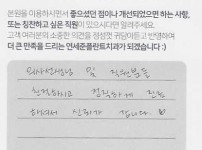 본원을 이용하시면서 좋으셨던 점이나 개선되었으면 하는 사항,
또는 칭찬하고 싶은 직원이 있으시다면 알려주세요.
고객 여러분의 소중한 의견을 정성껏 귀담아듣고 반영하며
더 큰 만족을 드리는 연세준플란트치과가 되겠습니다 :)
의사선생님 및 직원분들
친절하고 정직하게 진료
하셔서 신뢰가 갑니다.